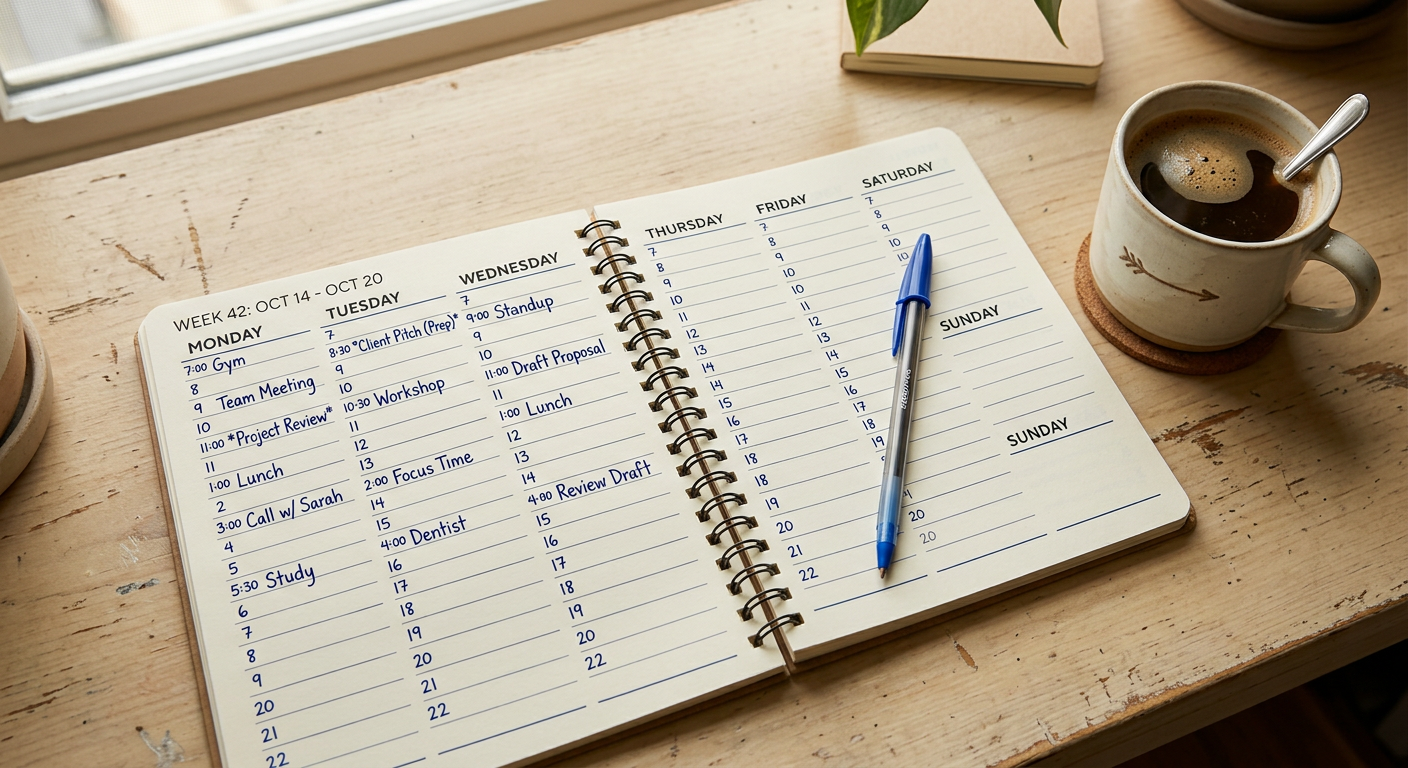 WEEK 42: OCT 14 - OCT 20
MONDAY
7:00 Gym
8
9 Team Meeting
10
11:00 *Project Review*
11
1:00 Lunch
2
3:00 Call w/ Sarah
4
5
5:30 Study
6
7
8
9
20
21
22
TUESDAY
7
8:30 *Client Pitch (Prep)*
9
10
10:30 Workshop
11
12
13
2:00 Focus Time
14
15
4:00 Dentist
16
17
18
19
20
21
22
WEDNESDAY
7
9:00 Standup
9
10
11:00 Draft Proposal
11
1:00 Lunch
12
13
14
4:00 Review Draft
15
16
17
18
19
20
22
THURSDAY
7
8
9
10
11
12
13
14
14
15
16
17
18
18
19
20
21
22
FRIDAY
7
8
9
10
10
11
12
13
14
15
16
17
18
19
20
20
SATURDAY
7
8
9
10
10
SUNDAY
SUNDAY